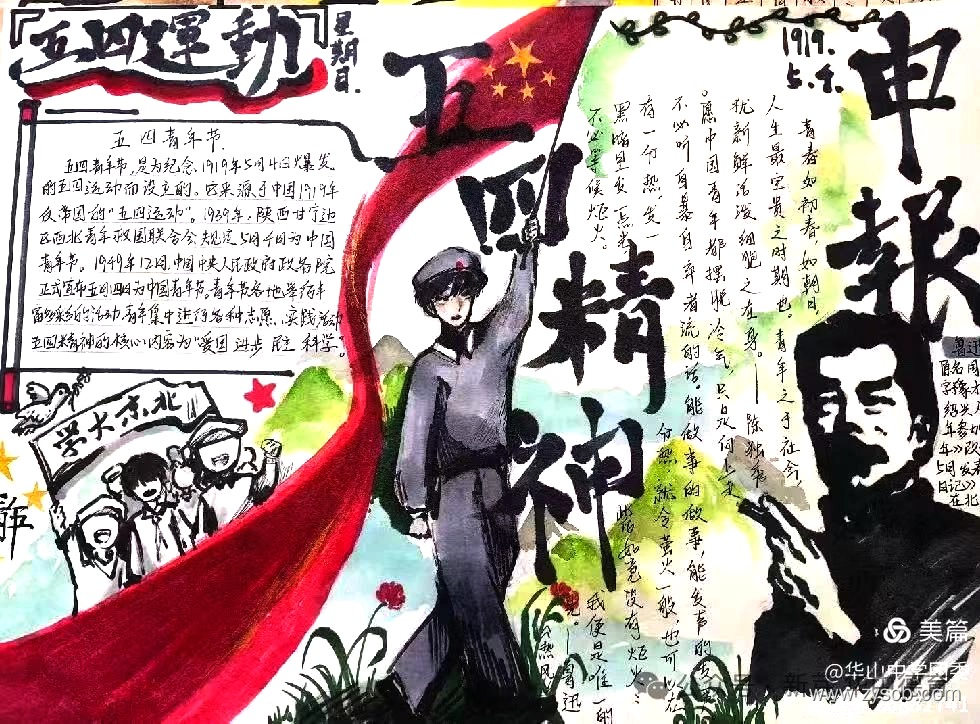 五四運動
星期日.
五四青年节.
五四青年节,是为纪念1919年5月4日爆发
的五四运动而设立的。它来源于中国1919年
反帝国的"五四运动"。1939年,陕西甘宁边
区西北青年救国联合会规定5月4日为中国
青年节。1949年12月,中国中央人民政府政务院
正式宣布五月四日为中国青年节。青年节各地举行丰
富多彩的活动,青年集中进行各种志愿、实践活动
五四精神的核心内容为"爱国 进步 民主 科学".
北京大学
五四精神
1919.
5.4.
申報
青春如初春,如朝日,
人生最宝贵之时期也。青年之于社会,
犹新鲜活泼细胞之在身。——陈独秀
愿中国青年都摆脱冷气,只是向上走
不必听自暴自弃者流的话。能做事的做事,能发声的发
有一份热,发一份热 就令萤火一般,也可以在
黑暗里发一点光
不必等候炬火。
此后如竟没有炬火:
我便是唯一的
光。——鲁迅
《热风
鲁迅
美篇
@华山中学团委
www.zysob.com